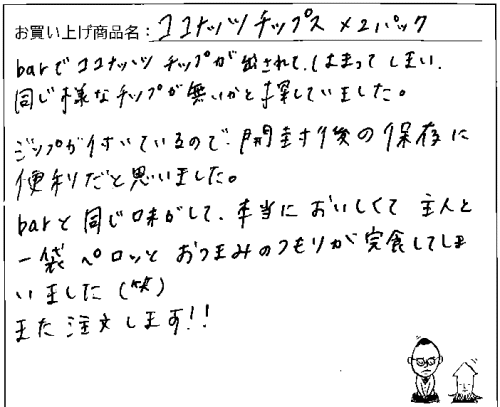 お買い上げ商品名：ココナッツチップス ×2パック
barでココナッツ チップが出されて、はまってしまい、
同じ様なチップが無いかと探していました。
ジップが付いているので、開封後の保存に
便利だと思いました。
barと同じ味がして、本当においしくて 主人と
一袋 ペロッと おつまみのつもりが完食してしま
いました（笑）
また注文します!!